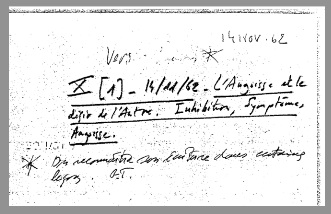 14 NOV. 62
Vers *
X [1] - 14/11/62 - L'Angoisse et le
désir de l'Autre. Inhibition, Symptôme,
Angoisse.
* On reconnaîtra son écriture dans certaines
leçons G.T.